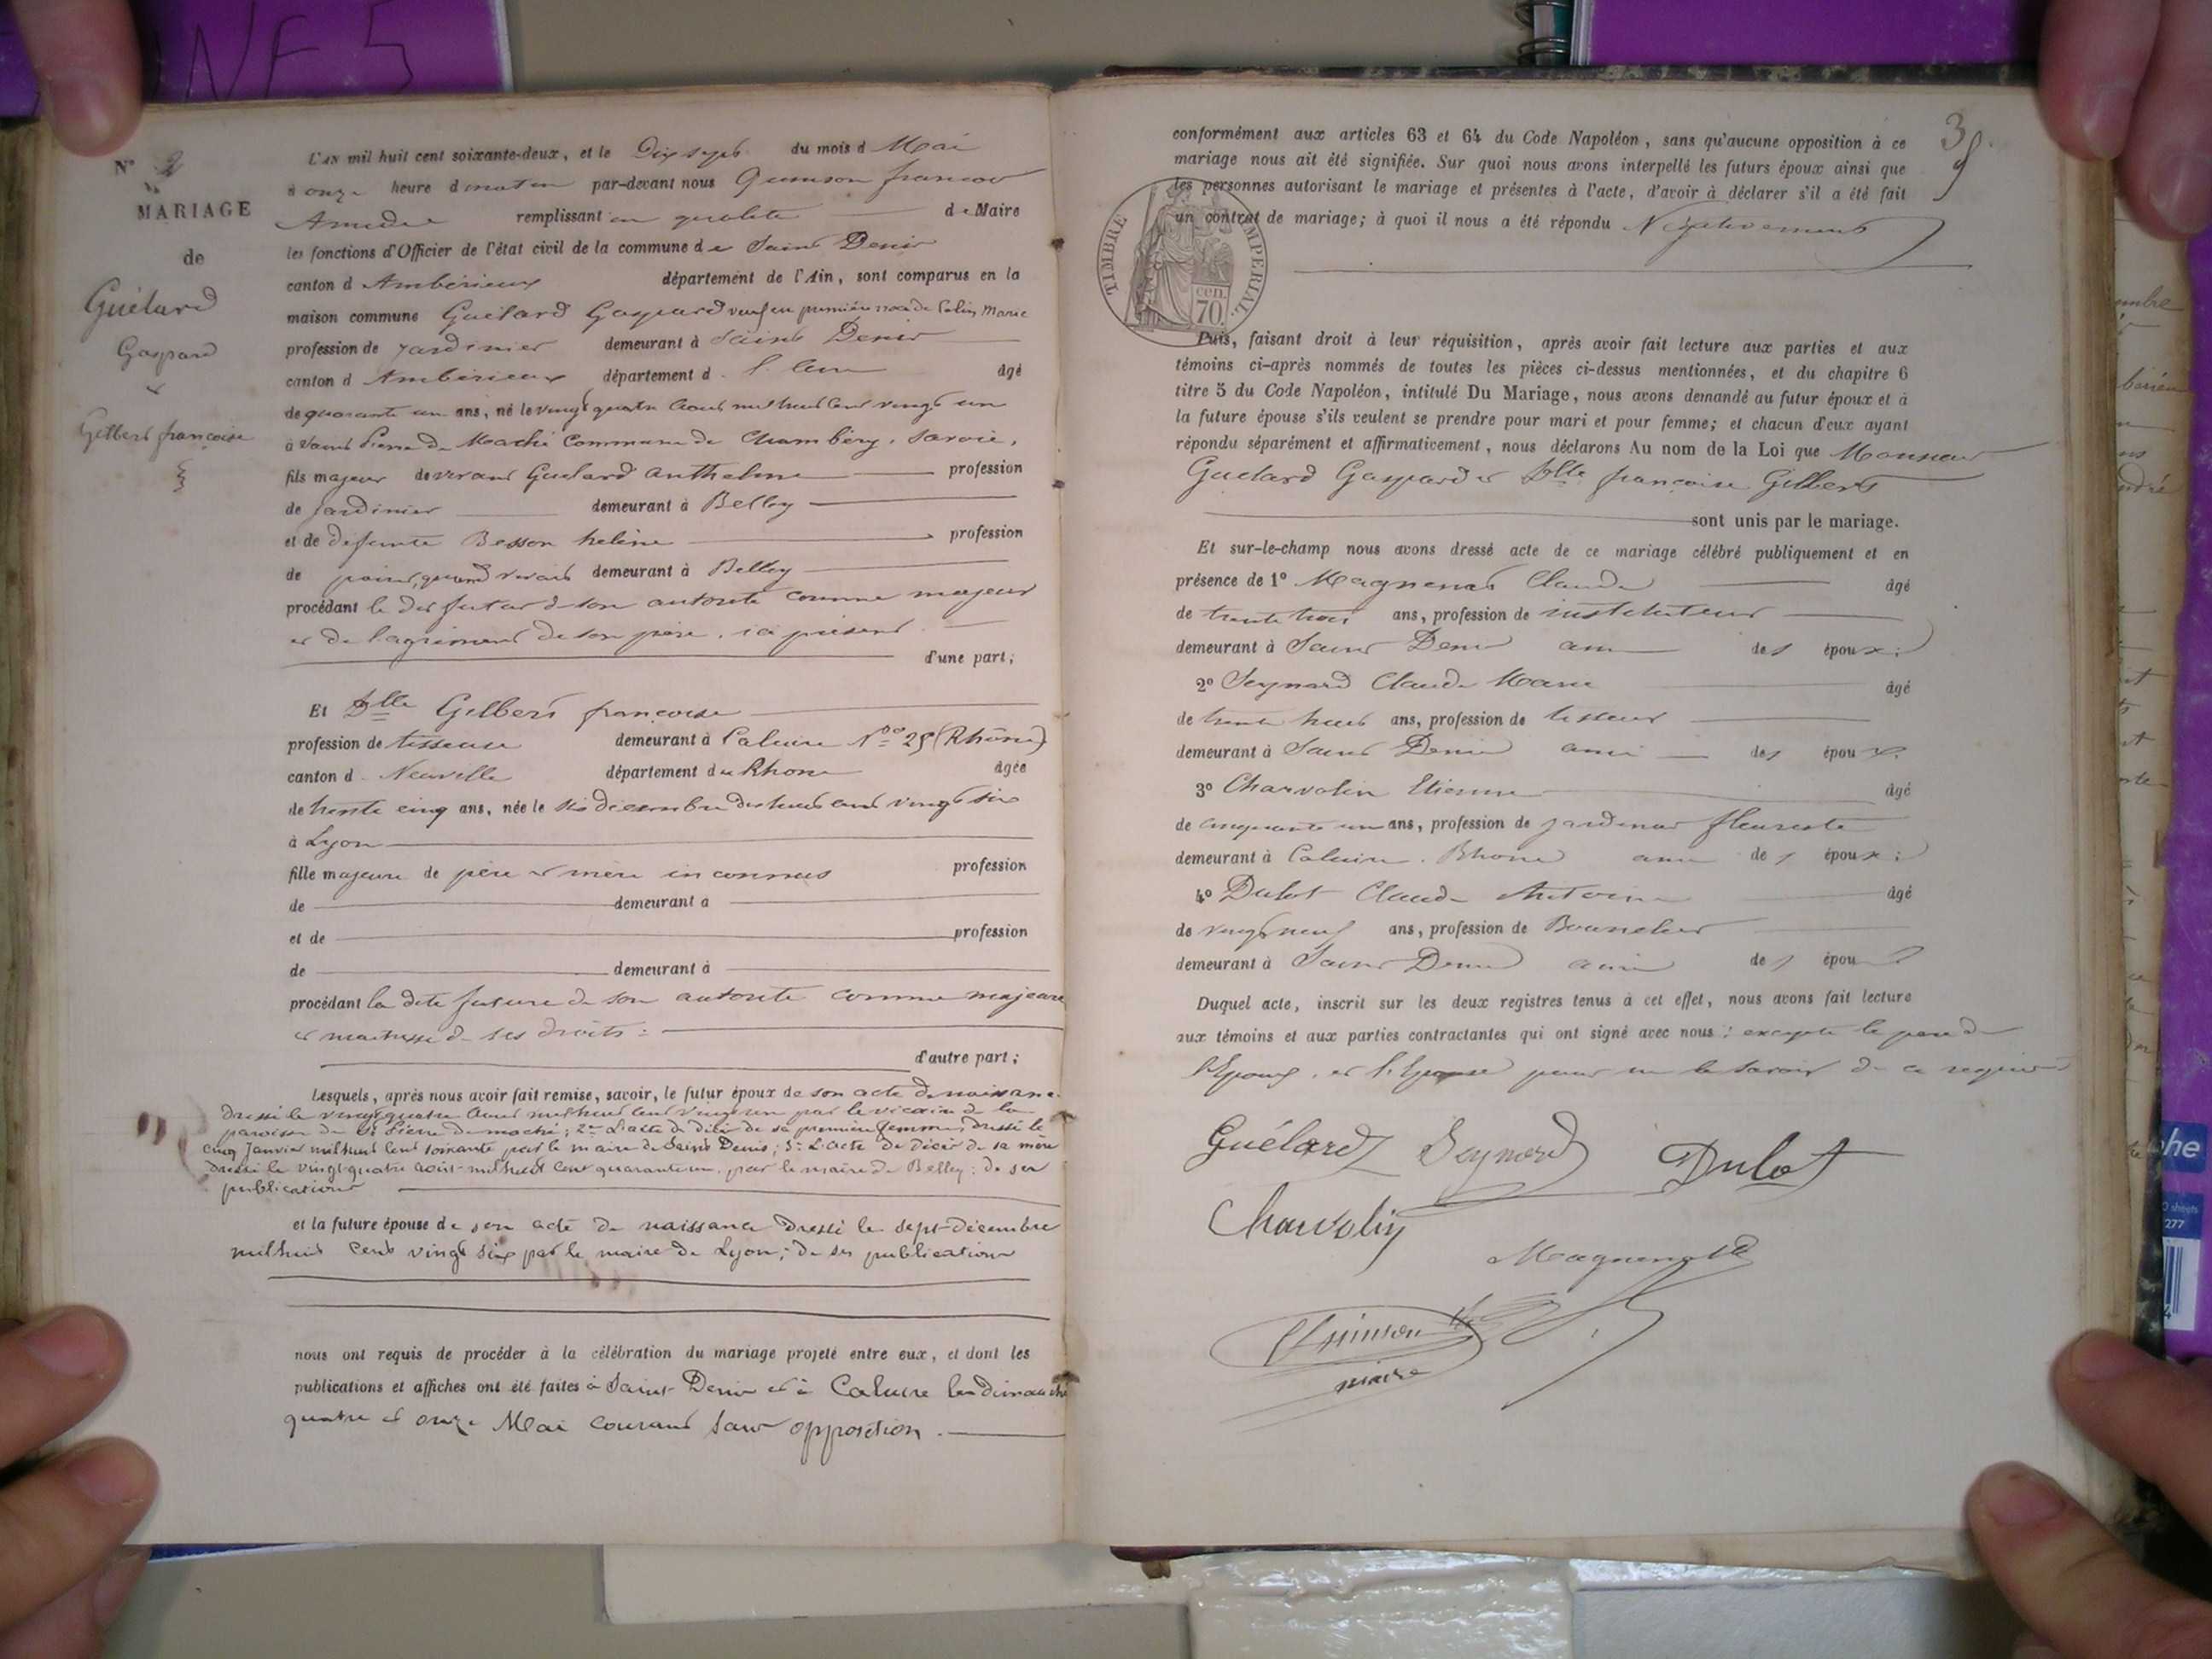 NF 5
N° 2
MARIAGE
de
Guélard
Gaspard
&
Gilbert françoise
L'AN mil huit cent soixante-deux, et le Dix sept du mois d Mai
à onze heure d matin par-devant nous Quinson françois
Amédée remplissant en qualité de Maire
les fonctions d'Officier de l'état civil de la commune de Saint Denis
canton d Ambérieux département de l'Ain, sont comparus en la
maison commune Guélard Gaspard veuf en première noce de Colin Marie
profession de jardinier demeurant à Saint Denis
canton d Ambérieux département d l'ain âgé
de quarante un ans, né le vingt quatre Aout mil huit cent vingt un
à Saint Pierre de Maché Commune de Chambéry, Savoie,
fils majeur de vivant Guelard Anthelme profession
de jardinier demeurant à Belley
et de défunte Besson helène profession
de quand vivait demeurant à Belley
procédant le dit futur de son autorité comme majeur
et de l'agrément de son père, ici présent.
d'une part;
Et Dlle Gilbert françoise
profession de tisseuse demeurant à Caluire N° 25 (Rhône)
canton d Neuville département du Rhone âgée
de trente cinq ans, née le six décembre dix huit cent vingt six
à Lyon
fille majeure de père et mère inconnus profession
de demeurant à
et de profession
de demeurant à
procédant la dite future de son autorité comme majeure
et maitresse de ses droits:
d'autre part;
Lesquels, après nous avoir fait remise, savoir, le futur époux de son acte de naissance
dressé le vingt quatre Aout mil huit cent vingt un par le vicaire de la
paroisse de St Pierre de maché; 2° L'acte de décès de sa première femme, dressé le
cinq Janvier mil huit cent soixante par le maire de Saint Denis; 3° L'acte de décès de sa mère
dressé le vingt quatre août mil huit cent quarante un par le maire de Belley; de ses
publications
et la future épouse de son acte de naissance Dressé le sept décembre
mil huit cent vingt six par le maire de Lyon; de ses publications
nous ont requis de procéder à la célébration du mariage projeté entre eux, et dont les
publications et affiches ont été faites à Saint Denis et à Caluire les dimanche
quatre et onze Mai courant sans opposition.
conformément aux articles 63 et 64 du Code Napoléon, sans qu'aucune opposition à ce
mariage nous ait été signifiée. Sur quoi nous avons interpellé les futurs époux ainsi que
les personnes autorisant le mariage et présentes à l'acte, d'avoir à déclarer s'il a été fait
un contrat de mariage; à quoi il nous a été répondu Négativement
TIMBRE IMPERIAL
70 cen.
Puis, faisant droit à leur réquisition, après avoir fait lecture aux parties et aux
témoins ci-après nommés de toutes les pièces ci-dessus mentionnées, et du chapitre 6
titre 5 du Code Napoléon, intitulé Du Mariage, nous avons demandé au futur époux et à
la future épouse s'ils veulent se prendre pour mari et pour femme; et chacun d'eux ayant
répondu séparément et affirmativement, nous déclarons Au nom de la Loi que Monsieur
Guelard Gaspard et Dlle françoise Gilbert
sont unis par le mariage.
Et sur-le-champ nous avons dressé acte de ce mariage célébré publiquement et en
présence de 1° Magnenot Claude âgé
de trente trois ans, profession de instituteur
demeurant à Saint Denis ami des époux;
2° Seynard Claude Marie âgé
de trente huit ans, profession de tisseur
demeurant à Saint Denis ami des époux.
3° Charvolin Etienne âgé
de cinquante un ans, profession de jardinier fleuriste
demeurant à Caluire, Rhone ami des époux;
4° Dulot Claude Antoine âgé
de vingt neuf ans, profession de
demeurant à Saint Denis ami des époux
Duquel acte, inscrit sur les deux registres tenus à cet effet, nous avons fait lecture
aux témoins et aux parties contractantes qui ont signé avec nous; excepté le père de
l'Epoux, et l'Epouse pour ne le savoir de ce requis
Guélard Seynard Dulot
Charvolin
Magnenot
Quinson
maire